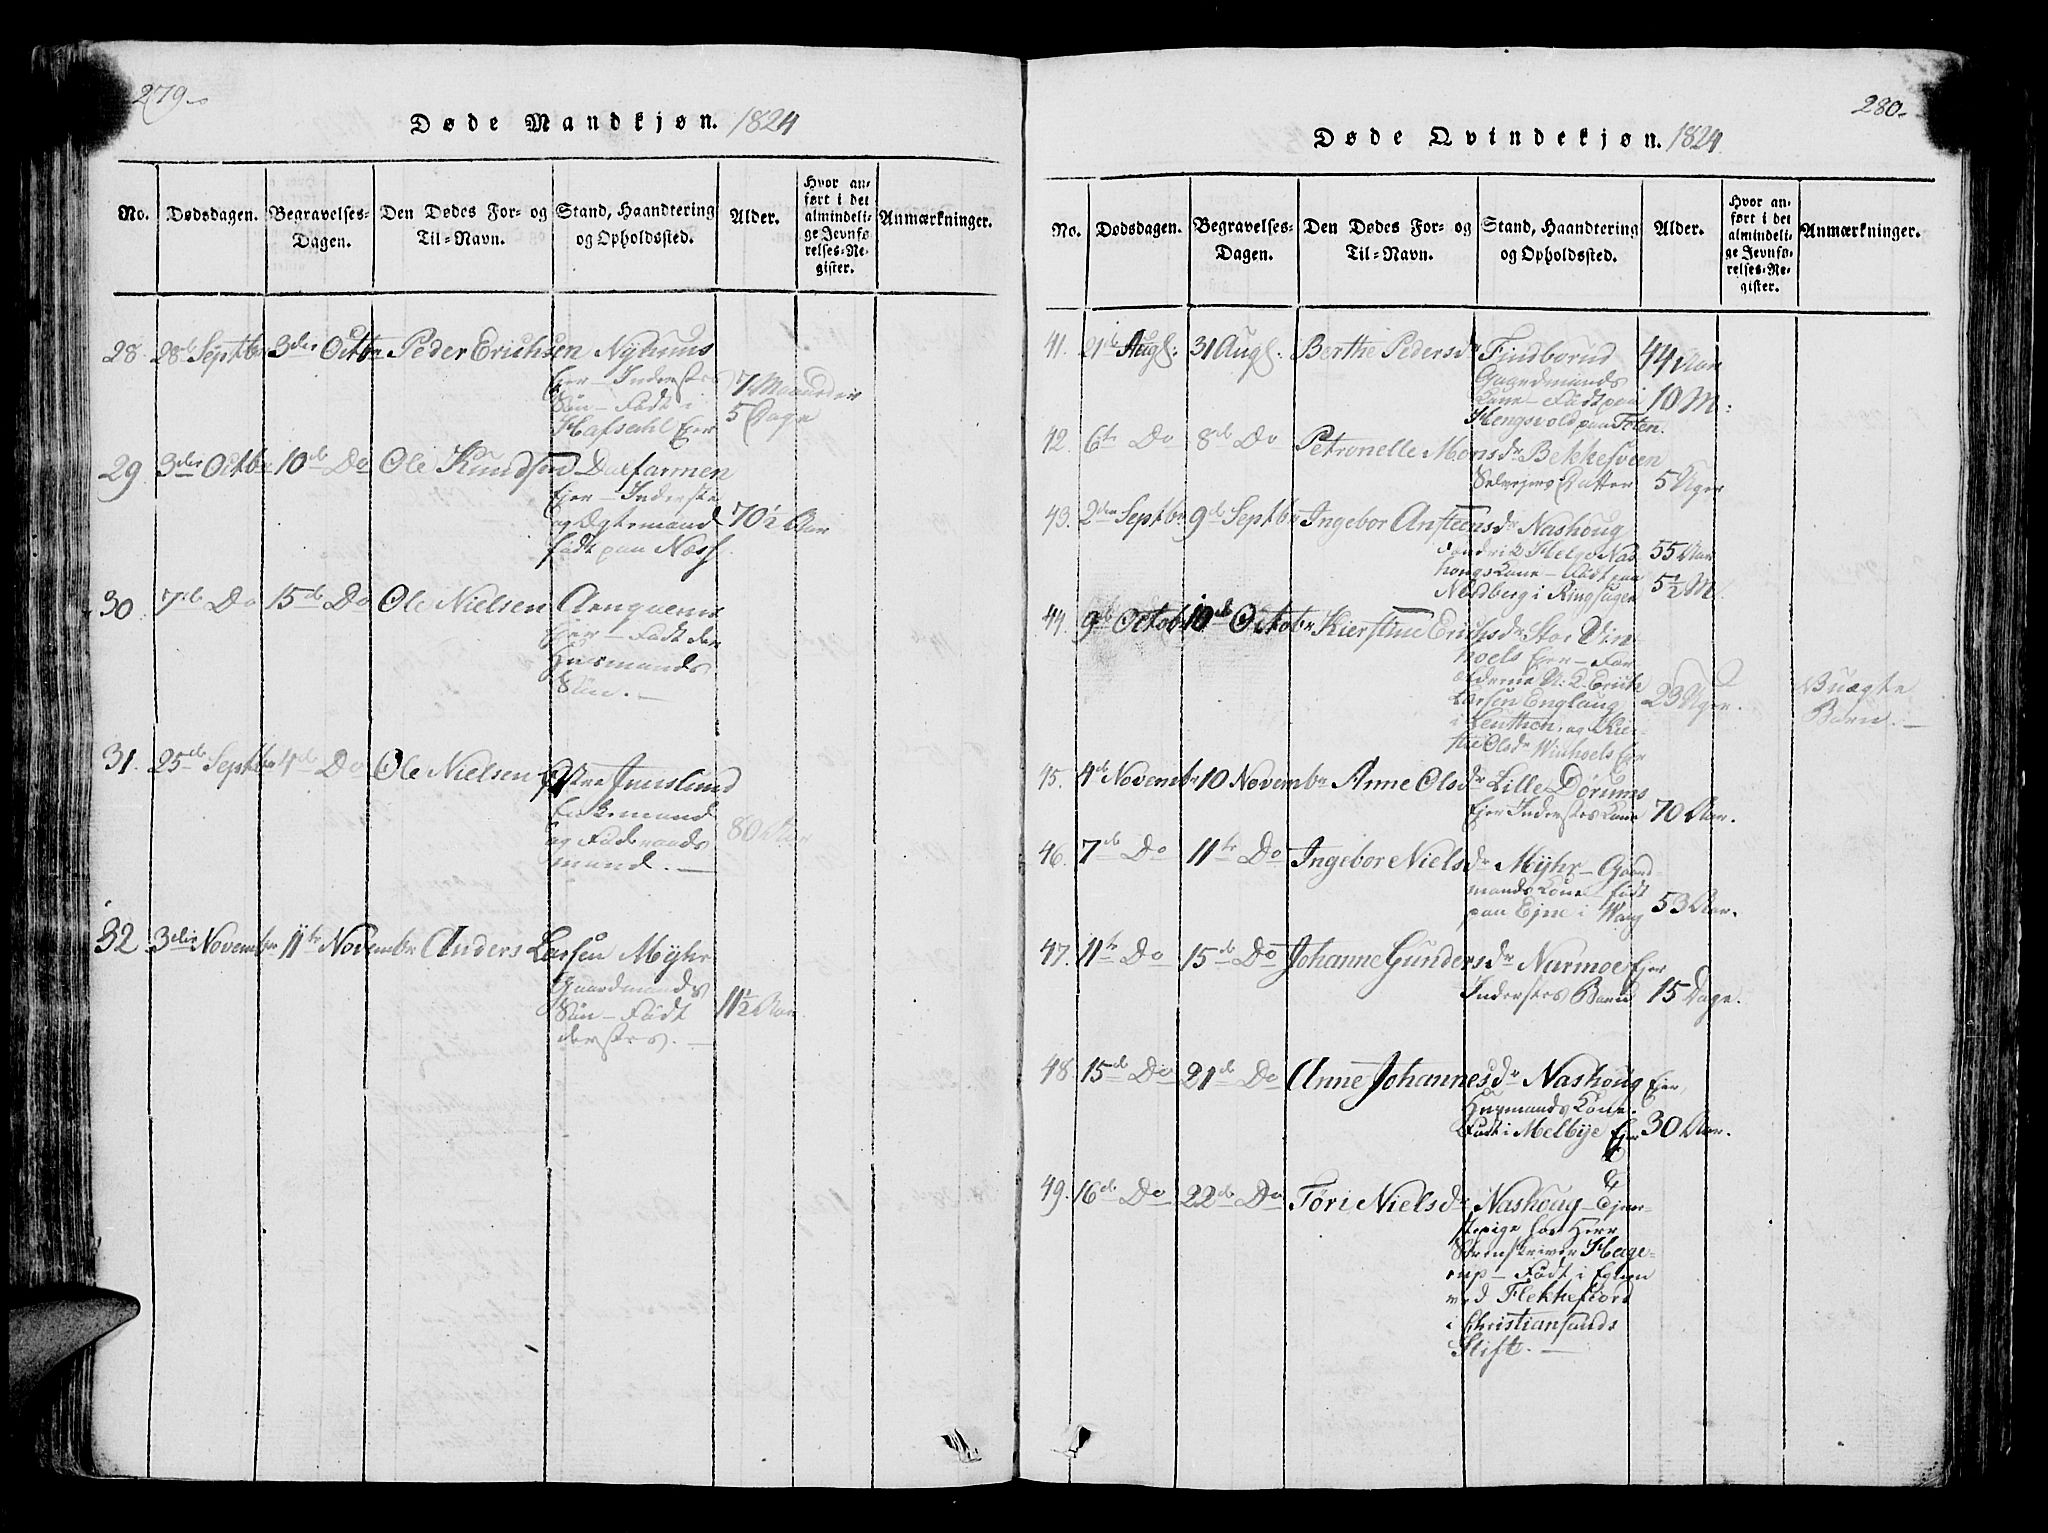 279.
Døde Mandkjøn. 1824
No.
Dødsdagen.
Begravelses-
Dagen.
Den Dødes For- og
Til-Navn.
Stand, Haandtering
og Opholdssted.
Alder.
Hvor an-
ført i det
almindeli-
ge Jevnfø-
relses-Re-
gister.
Anmærkninger.
28 28de Septbr 3die Octbr Peder Erichsen Nyhuus
Ejer – Inderstes
Søn – Født i
Hafsahl Ejer
7 Maaneder
5 Dage
29 3die Octbr 10de Do Ole Knudsen Dalfarmen
Ejer – Inderste
og Ægtemand
født paa Næss.
70½ Aar
30 7de Do 15de Do Ole Nielsen
Ejer – Født der
Husmands
Søn. –
31. 25de Septbr 4de Do Ole Nielsen Østre Imislund
Enkemand
og Føderaads
mand. –
80 Aar
32 3die Novembr 11te Novembr Anders Larsen Myhr
Gaardmands
Søn – Født
dersteds. –
11½ Aar.
280.
Døde Qvindekjøn. 1824
No.
Dødsdagen.
Begravelses-
Dagen.
Den Dødes For- og
Til-Navn.
Stand, Haandtering
og Opholdssted.
Alder.
Hvor an-
ført i det
almindeli-
ge Jevnfø-
relses-Re-
gister.
Anmærkninger.
41. 21de Augs: 31 Augs: Berthe Pedersdr Fjudborud
Gaardmands
Kone – Født paa
Hengsvold paa Toten.
44 Aar
10 M:
42. 6te Do 8de Do Petronelle Monsdr Bekkesveen
Selvejers Datter 5 Uger
43. 2den Septbr 9de Septbr Ingebor Anstensdr Nashoug
Helge Nas
hougs Kone – Født paa
Nedberg i Ringsager
55 Aar
5½ M.
44. 9de Octobr 10de Octobr Kierstine Erichsdr Stor Vin
hoels Ejer – For
ældrene U. K. Erich
Larsen Englaug
i Leuthen, og Kir-
stie Olsdr Winhoels Ejer
23 Uger.
Uægte
Barn. –
45. 4de Novembr 10 Novembr Anne Olsdr Lille Dørums
Ejer Inderstes Kone 70 Aar.
46. 7de Do 11te Do Ingebor Nielsdr Myhr – Gaard-
mands Kone født
paa Ejne i Wang 53 Aar.
47. 11te Do 15de Do Johanne Gundersdr Narmoe Ejer
Inderstes Barn 15 Dage.
48 15de Do 21de Do Anne Johannesdr Nashoug Ejer,
Husmands Kone.
Født i Melbye Ejer 30 Aar.
49. 16de Do 22de Do Tøri Nielsdr Nashoug – Tjene-
stepige hos Herr
Sorenskriver Hage-
rup – Født i
ved Flekkefiord
i Christiansands
Stift. –